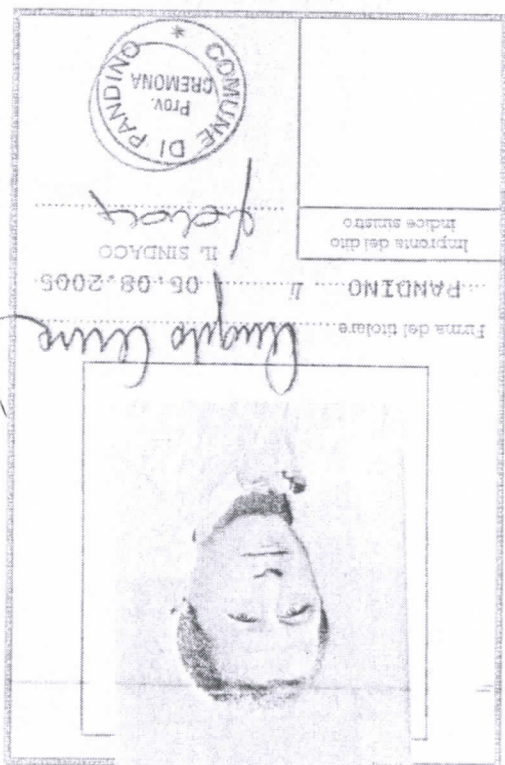 Firma del titolare
PANDINO lì 05.08.2005
IL SINDACO
Impronta del dito
indice sinistro
COMUNE DI PANDINO *
Prov.
CREMONA